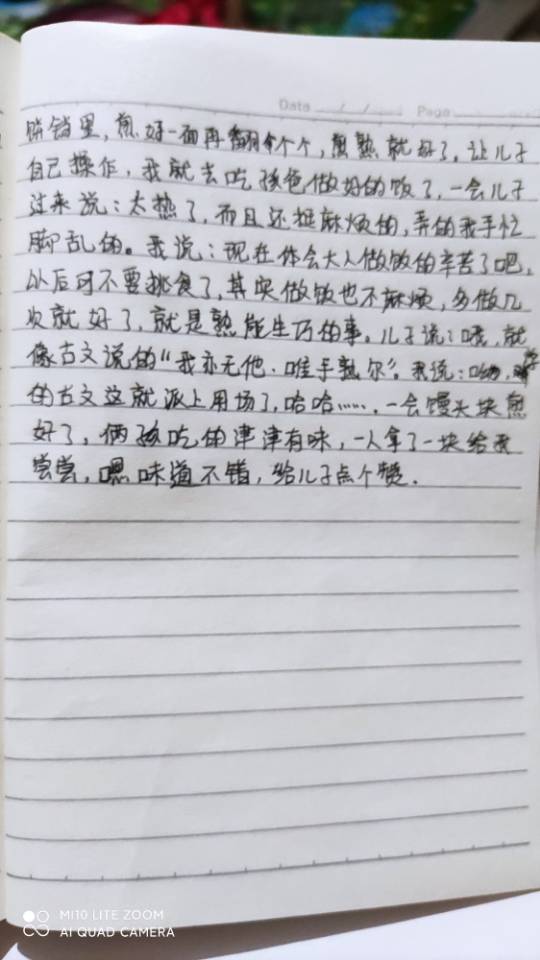 Date / / Page
饼铛里，煎好一面再翻个个，煎熟就好了。让儿子
自己操作，我就去吃孩爸做好的饭了，一会儿子
过来说：太热了，而且还挺麻烦的，弄的我手忙
脚乱的。我说：现在体会大人做饭的辛苦了吧，
以后可不要挑食了，其实做饭也不麻烦，多做几
次就好了，就是熟能生巧的事。儿子说：哦，就
像古文说的“我亦无他，唯手熟尔”。我说：呦，学
的古文这就派上用场了，哈哈……，一会馒头块煎
好了，俩孩吃的津津有味，一人拿了一块给我
尝尝，嗯味道不错，给儿子点个赞.
MI10 LITE ZOOM
AI QUAD CAMERA